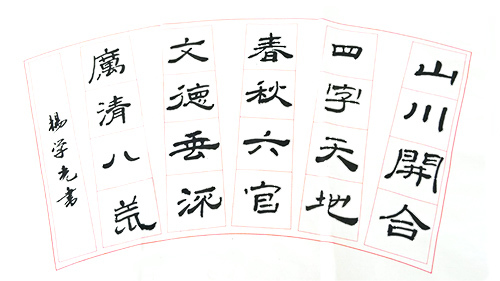 山川開合
四字天地
春秋六官
文德垂
厲清八荒
楊学光書